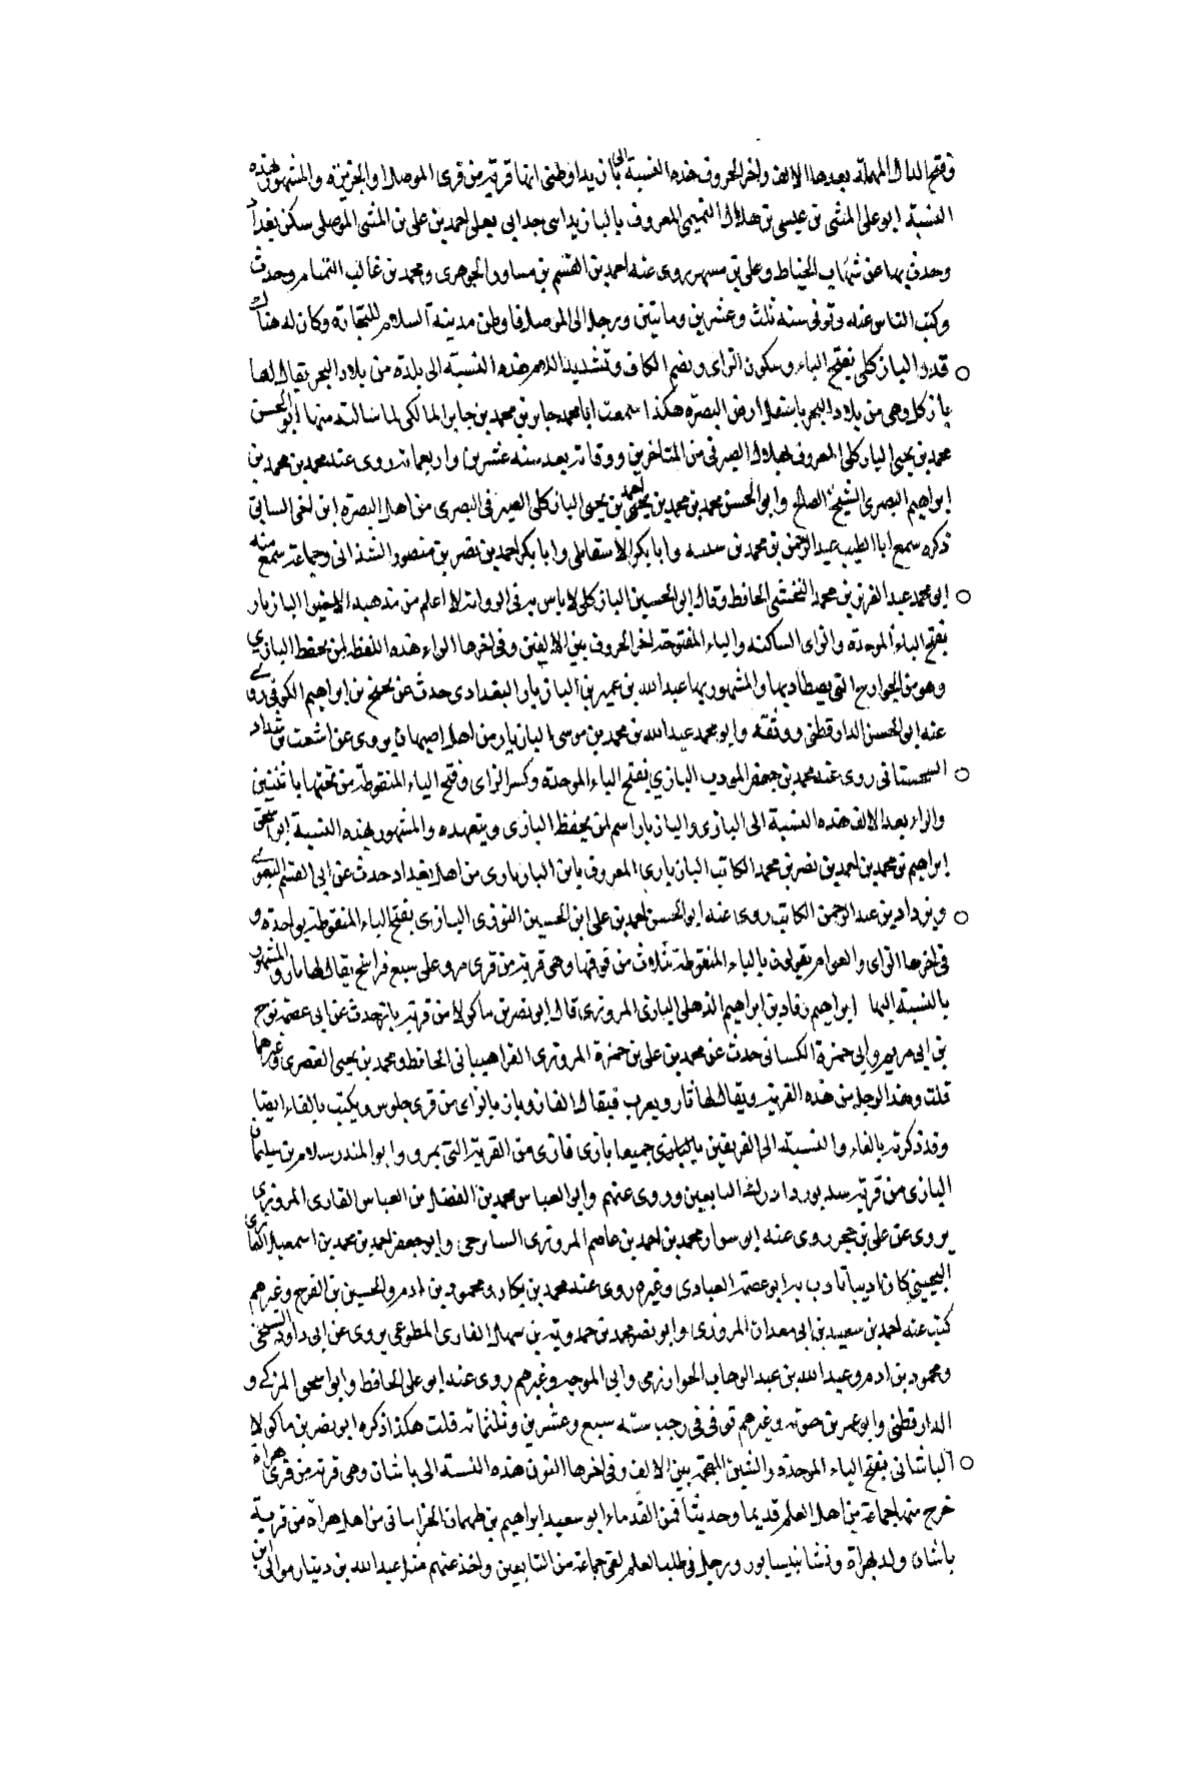 وفتح الدال المهملة بعدها الالف واخر الحروف هذه النسبة الى بازبدا وظنى انها قرية من قرى الموصل او الجزيرة والمشهور بهذه
النسبة ابو على المثنى بن عيسى بن هلال التميمى المعروف بالبازبداى جد ابى يعلى احمد بن على بن المثنى الموصلى سكن بغداد
وحدث بها عن شهاب الحناط وعلى بن مسهر يروى عنه احمد بن القسم بن مساور الجوهرى ومحمد بن غالب التمتام وحدث
وكتب الناس عنه وتوفى سنة ثلث وعشرين ومايتين ورجل الى الموصل فاوطن مدينة السلام للتجارة وكان له هناك
قدر البازكلى بفتح الباء وسكون الزاى وضم الكاف وتشديد اللام هذه النسبة الى بلدة من بلاد البحر يقال لها
بازكل وهى من بلاد البحر باسفل ارض البصره هكذا سمعت ابا محمد جابر بن محمد بن جابر المالكى لما سالته منها ابو الحسن
محمد بن يحيى البازكلى المعروف بهلال الصيرفى من المتاخرين ووفاته بعد سنة عشرين واربعماية روى عنه محمد بن محمد بن
ابراهيم البصرى الشيخ الصالح وابو الحسن محمد بن محمد بن احمد بن يحيى البازكلى الصيرفى البصرى من اهل البصره ابن اخى السابق
ذكره سمع ابا الطيب عبد الرحمن بن محمد بن وابا بكر الاسفاطى وابا بكر احمد بن نصر بن منصور الشذائى وجماعة سمع منه
ابو محمد عبد العزيز بن محمد النخشبى الحافظ وقال ابو الحسين البازكلى لا باس به فى الرواية لا اعلم من مذهبه الا خيرا البازيار
بفتح الباء الموحدة والزاى الساكنة والياء المفتوحة اخر الحروف بين الالفين وفى اخرها الراء هذه اللفظه لمن يحفظ البازى
وهو من الجوارح التى يصطاد بها والمشهور بها عبد الله بن عمر بن البازيار البغدادى حدث عن بن ابراهيم الكوفى روى
عنه ابو الحسن الدارقطنى ووثقه وابو محمد عبد الله بن محمد بن موسى البازيار من اهل اصبهان يروى عن اشعث بن شداد
السجستانى روى عنه محمد بن جعفر المودب البازيارى بفتح الباء الموحدة وكسر الزاى وفتح الياء المنقوطة من تحتها باثنتين
والراء بعد الالف هذه النسبة الى البازى والبازيار اسم لمن يحفظ البازى ويتعهده والمشهور بهذه النسبة ابو اسحق
ابراهيم بن محمد بن احمد بن نصر بن محمد الكاتب البازيارى المعروف بابن البازيارى من اهل بغداد حدث عن ابى القسم البغوى
ويزداد بن عبد الرحمن الكاتب روى عنه ابو الحسن احمد بن على ابن الحسين التوزى البازى بفتح الباء المنقوطة بواحدة و
فى اخرها الزاى والعوام يقولون بالباء المنقوطة بثلاث من فوقها وهى قرية من قرى مرو على سبع فراسخ يقال لها باز والمشهور
بالنسبة اليها ابراهيم زفاد بن ابراهيم الذهلى البازى المروزى قال ابو نصر بن ماكولا من قرية باز يحدث عن ابى عصمة نوح
بن ابى مريم وابى حمزة الكسائى حدث عن محمد بن على بن حمزة المروزى الفراهيبانى الحافظ ومحمد بن يحيى القصرى وغيرهما
قلت وهذا الرجل من هذه القرية ويقال لها فاز ويعرب فيقال الفاز وباز بالزاى من قرى طوس ويكتب بالفاء ايضا
وقد ذكرته بالفاء والنسبة الى القريتين بالبازى جميعا بازى فازى من القرية التى بمرو وابو المنذر سلام بن سليمان
البازى من قرية ادرك التابعين وروى عنهم وابو العباس محمد بن الفضل بن العباس الفازى المروزى
يروى عن على بن حجر روى عنه ابو سوار محمد بن احمد بن عاصم المروزى وابو جعفر احمد بن محمد بن اسمعيل الفازى
كان اديبا تادب به ابو عصمة العبادى وغيره روى عنه محمد بن بكار ومحمود بن ادم والحسين بن الفرج وغيرهم
كتب عنه احمد بن سعيد بن ابى معدان المروزى وابو نصر محمد بن حمدويه بن سهل الفازى المطوعى يروى عن ابى داود السنجى
ومحمود بن ادم وعبد الله بن عبد الوهاب الخوارزمى وابى الموجه وغيرهم روى عنه ابو على الحافظ وابو اسحق المزكى و
الدارقطنى وابو عمر بن حيويه وغيرهم توفى فى رجب سنة سبع وعشرين وثلثمائه قلت هكذا ذكره ابو نصر بن ماكولا
الباشانى بفتح الباء الموحدة والشين المعجمة بين الالف وفى اخرها النون هذه النسبة الى باشان وهى قرية من قرى هراة
خرج منها جماعة من اهل العلم قديما وحديثا فمن القدماء ابو سعيد ابراهيم بن طهمان الخراسانى من اهل هراة من قرية
باشان ولد بهراة ونشا بنيسابور ورحل فى طلب العلم لقى جماعة من التابعين واخذ عنهم مثل عبد الله بن دينار مولى ابن